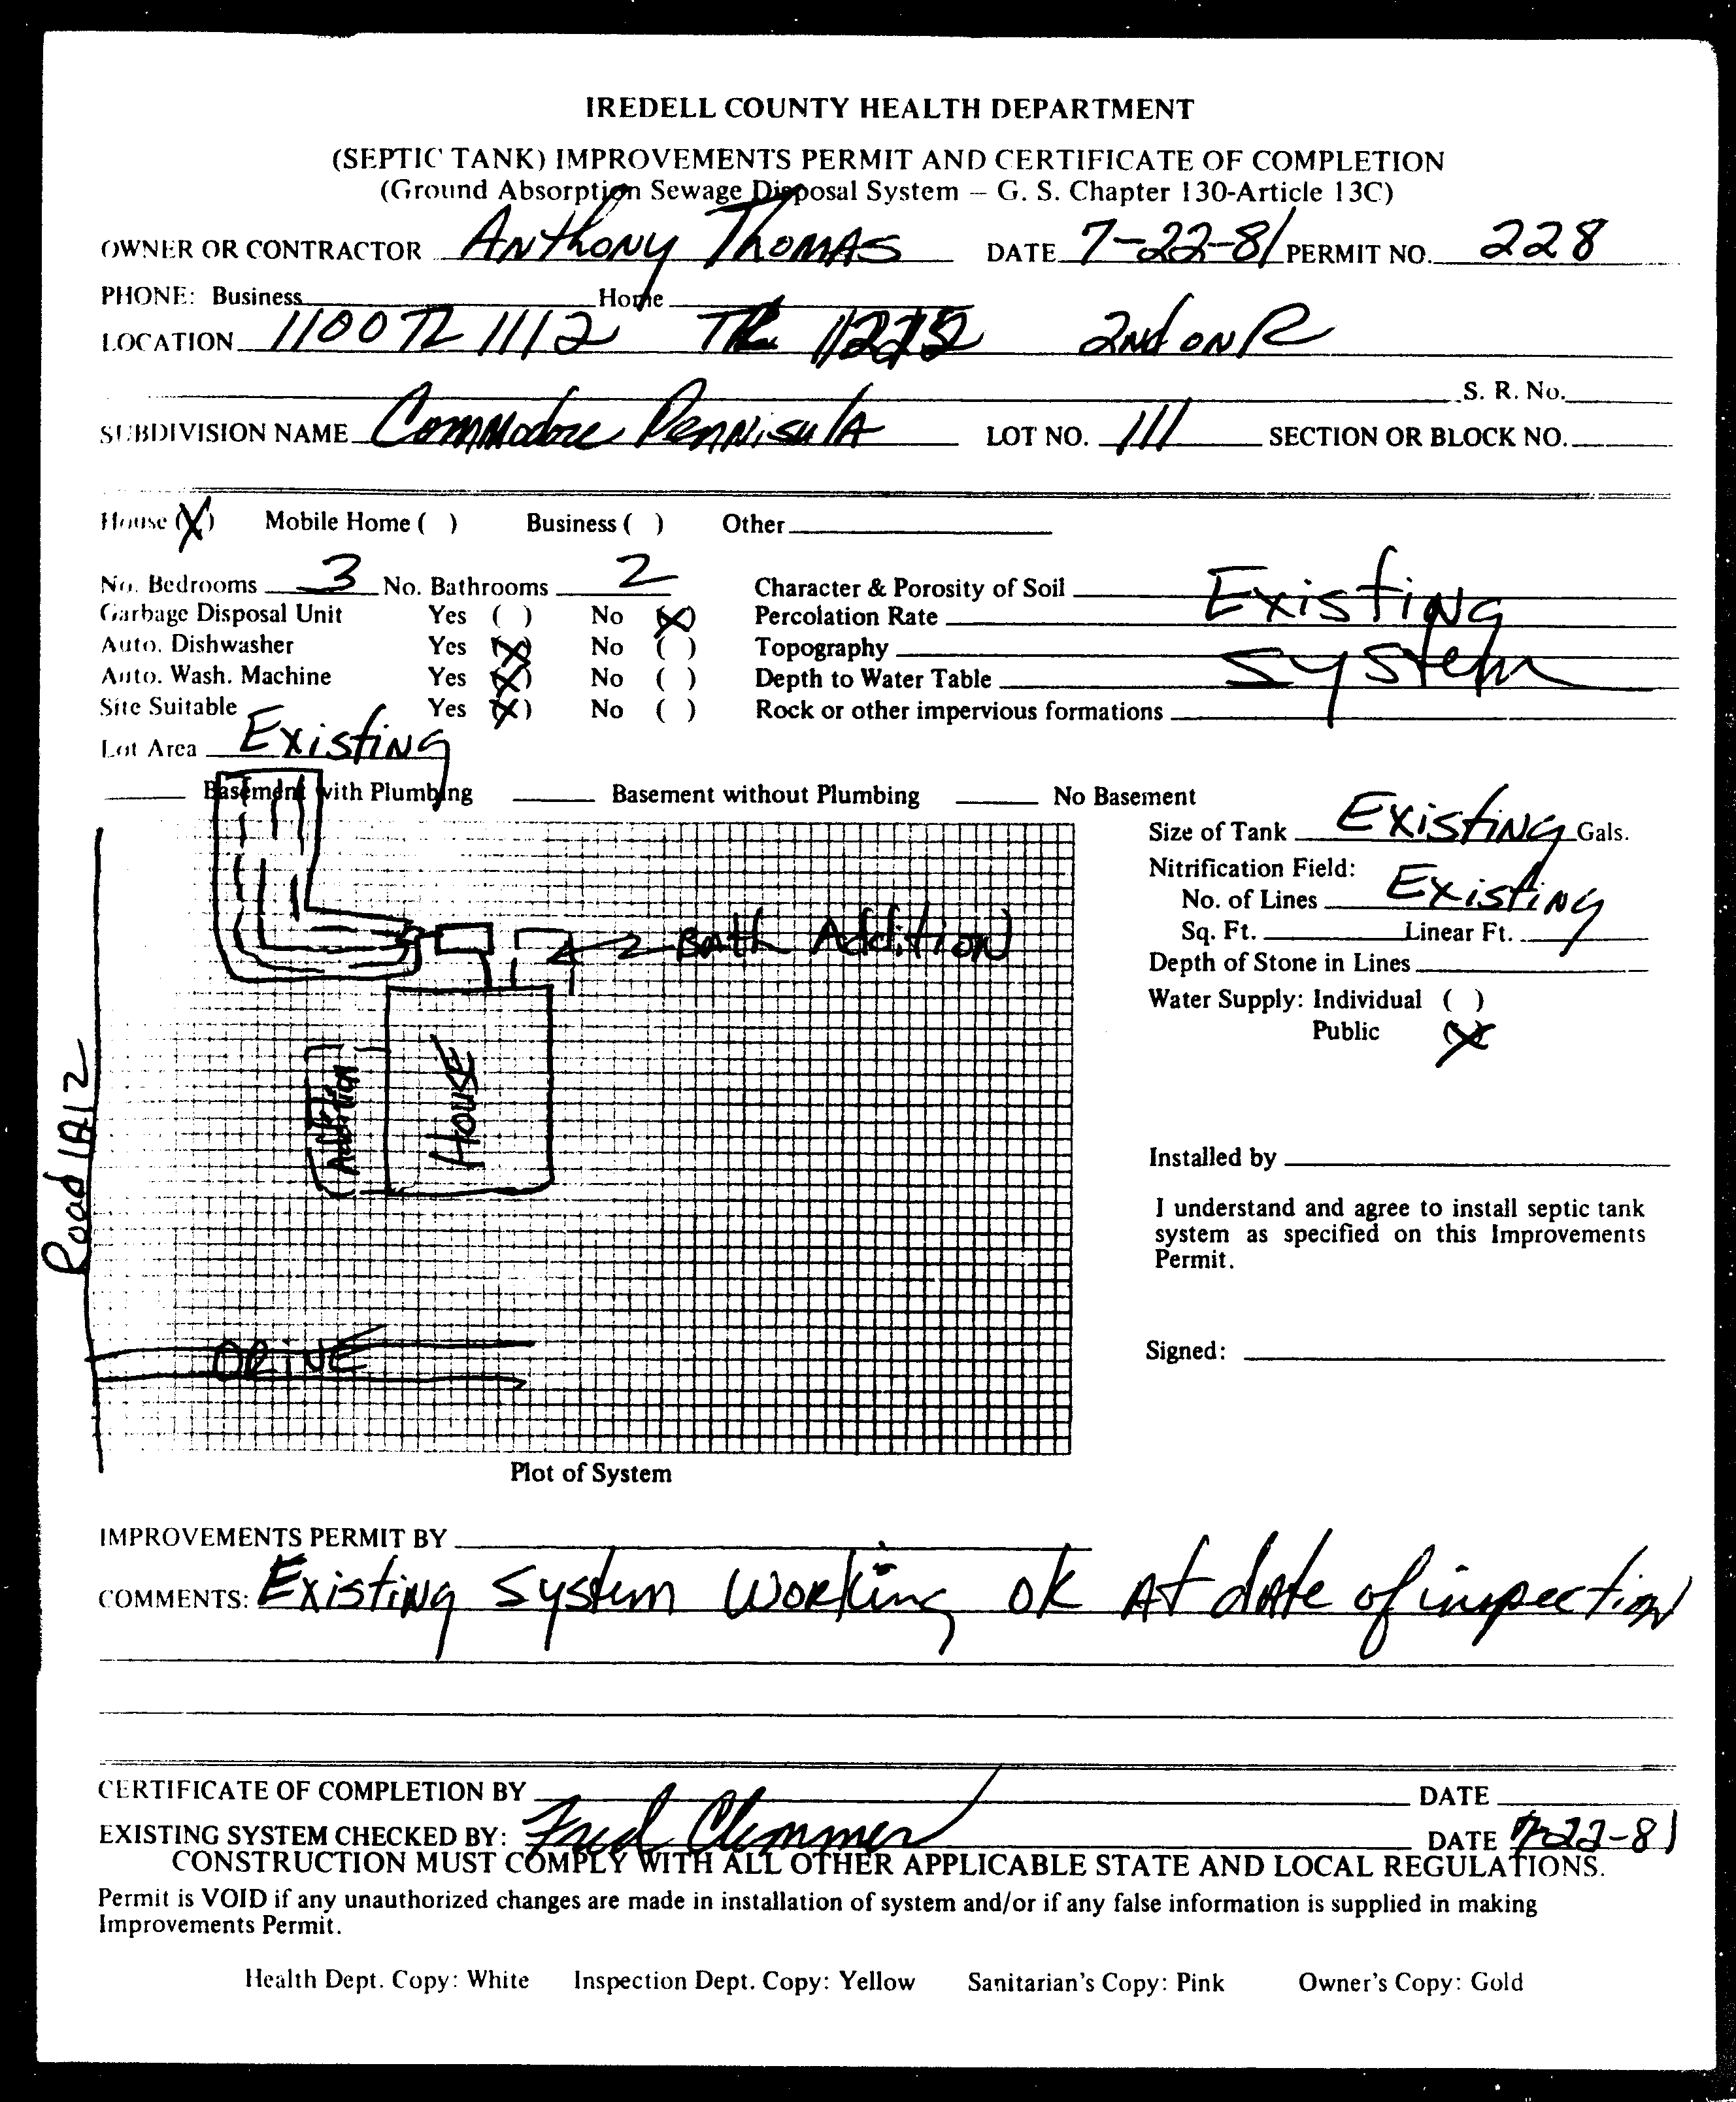 IREDELL COUNTY HEALTH DEPARTMENT
(SEPTIC TANK) IMPROVEMENTS PERMIT AND CERTIFICATE OF COMPLETION
(Ground Absorption Sewage Disposal System – G. S. Chapter 130-Article 13C)
OWNER OR CONTRACTOR Anthony Thomas DATE 7-22-81 PERMIT NO. 228
PHONE: Business Home
LOCATION 1100 TL 1112 2nd on R
S. R. No.
SUBDIVISION NAME Commodore Pennisula LOT NO. 111 SECTION OR BLOCK NO.
House (X) Mobile Home ( ) Business ( ) Other
No. Bedrooms 3 No. Bathrooms 2 Character & Porosity of Soil Existing
Garbage Disposal Unit Yes ( ) No (X) Percolation Rate
Auto. Dishwasher Yes (X) No ( ) Topography System
Auto. Wash. Machine Yes (X) No ( ) Depth to Water Table
Site Suitable Yes (X) No ( ) Rock or other impervious formations
Lot Area Existing
Basement with Plumbing Basement without Plumbing No Basement
Size of Tank Existing Gals.
Nitrification Field:
No. of Lines Existing
Sq. Ft. Linear Ft.
Depth of Stone in Lines
Water Supply: Individual ( )
Public (X)
Bath Addition
House
Addition
Road
Drive
Installed by
I understand and agree to install septic tank
system as specified on this Improvements
Permit.
Signed:
Plot of System
IMPROVEMENTS PERMIT BY
COMMENTS: Existing System Working ok At date of inspection
CERTIFICATE OF COMPLETION BY DATE
EXISTING SYSTEM CHECKED BY: Fred Clemmer DATE 7-22-81
CONSTRUCTION MUST COMPLY WITH ALL OTHER APPLICABLE STATE AND LOCAL REGULATIONS.
Permit is VOID if any unauthorized changes are made in installation of system and/or if any false information is supplied in making
Improvements Permit.
Health Dept. Copy: White Inspection Dept. Copy: Yellow Sanitarian's Copy: Pink Owner's Copy: Gold